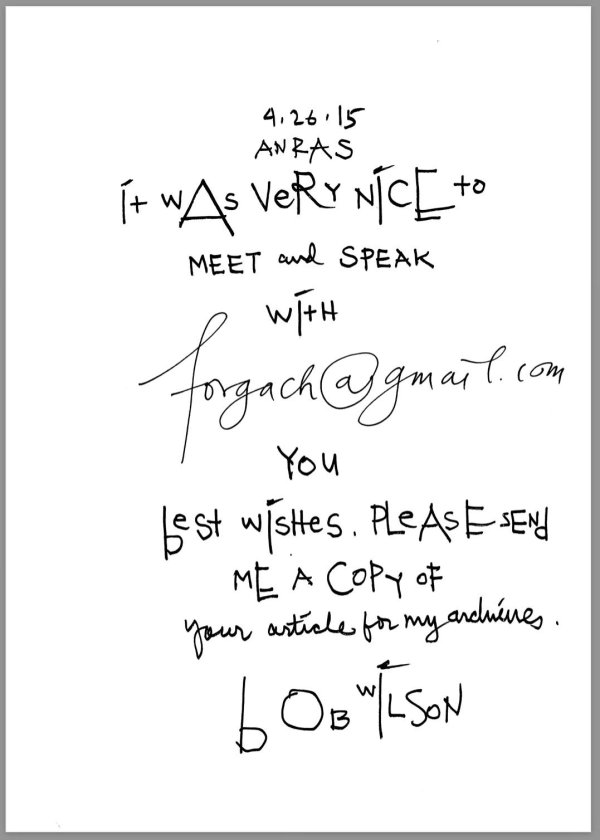 4.26.15
ANRAS
it wAs VeRY NICE to
MEET and SPEAK
WitH
forgach@gmail.com
YOU
best wisHes. PLeASE SENd
ME A COPY OF
your article for my archives.
bOB WILSON